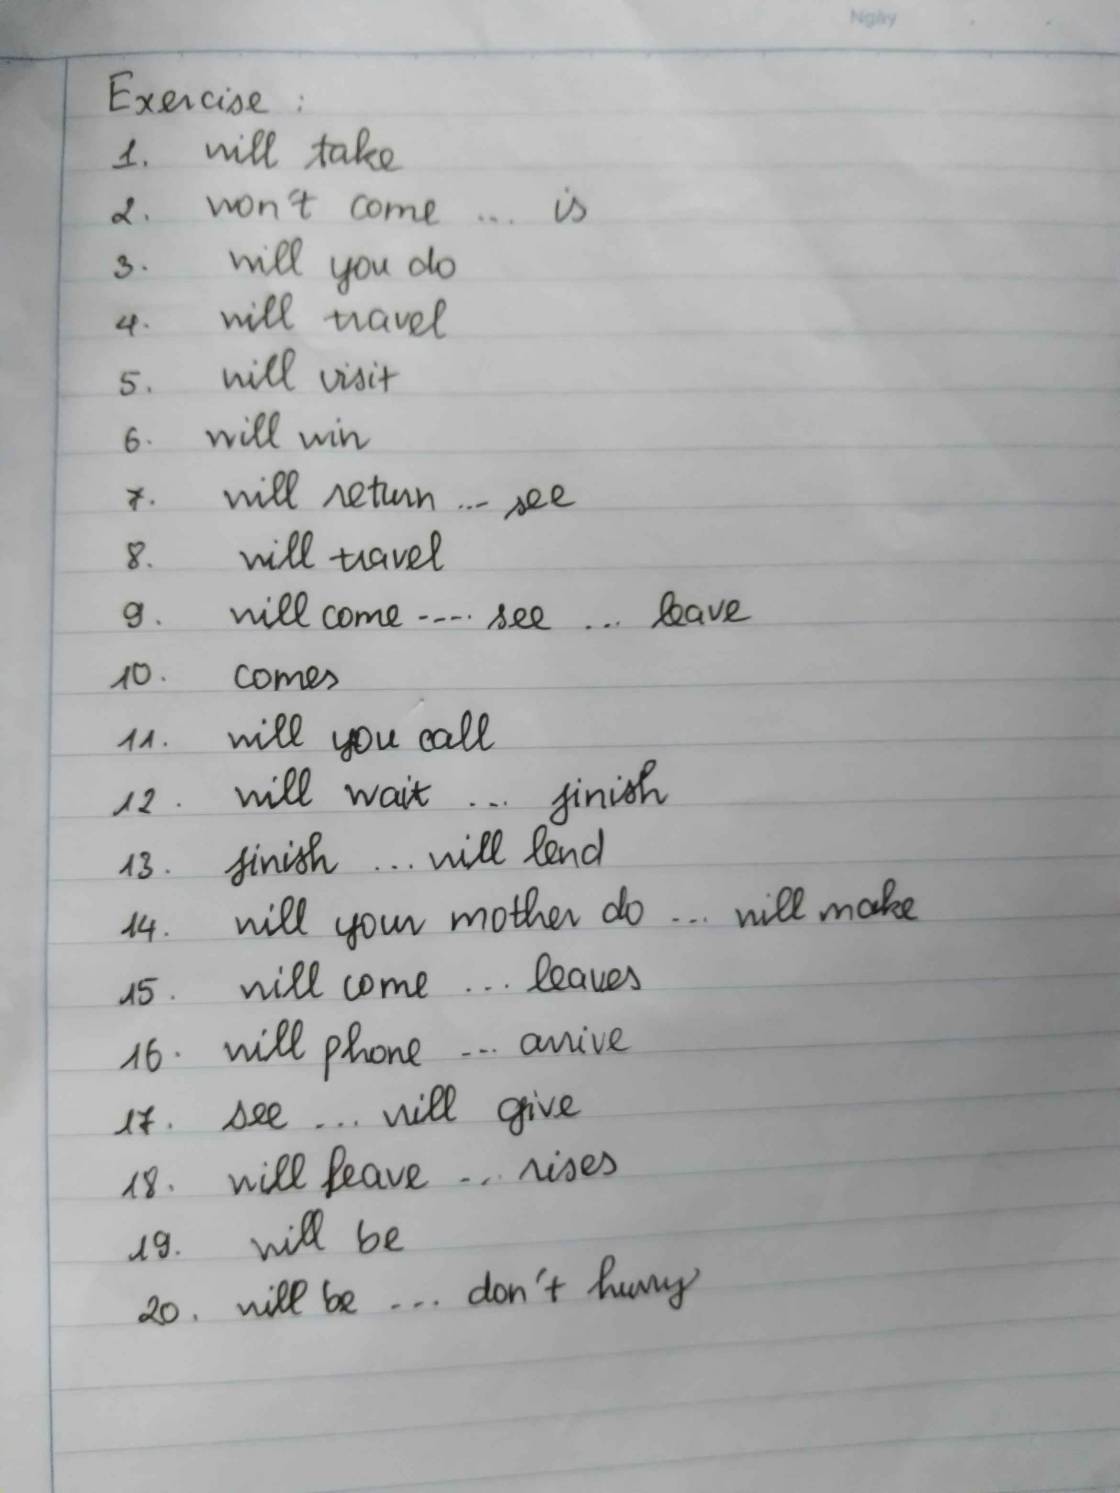 Ngày
Exercise :
1. will take
2. won't come ... is
3. will you do
4. will travel
5. will visit
6. will win
7. will return ... see
8. will travel
9. will come ---. see ... leave
10. comes
11. will you call
12. will wait ... finish
13. finish ... will lend
14. will your mother do ... will make
15. will come ... leaves
16. will phone ... arrive
17. see ... will give
18. will leave ... rises
19. will be
20. will be ... don't hurry